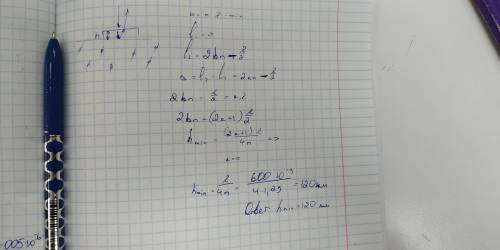 h
l₂ = 2hn - λ/2
Δ = l₂ - l₁ = 2hn - λ/2
2hn - λ/2 = kλ
2hn = (2k+1) λ/2
h min = (2k+1)·λ / 4n =>
k=0
h min = λ/4n = 600·10⁻⁹ / 4·1,25 = 120 нм
Ответ: h min = 120 нм
005·10⁻⁶